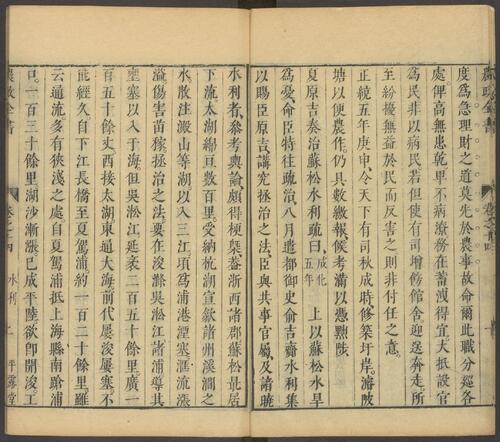 度爲急理財之道莫先於農事故命爾此職分廵各
處俾高無患乾卑不病潦務在蓄洩得宜大抵設官
爲民非以病民若但使有司增修館舍迎送奔走所
至紛擾無益於民而反害之則非付任之意
正統五年庚申令天下有司秋成時修築圩岸濬陂
塘以便農作仍具數繳報俟考滿以憑黜陟
夏原吉奏治蘇松水利疏曰成化五年上以蘇松水旱
爲憂命臣特往疏治八月遣都御史俞吉齎水利集
以賜臣原吉講究拯治之法臣與共事官屬及諸曉
水利者叅考輿論頗得梗槩葢浙西諸郡蘇松最居
下流太湖綿亘數百里受納杭湖宣歙諸州溪澗之
水散注澱山等湖以入三江頃爲浦港湮塞滙流漲
溢傷害苗稼拯治之法要在浚滌吳淞江諸浦導其
壅塞以入于海但吳淞江延袤二百五十餘里廣一
百五十餘丈西接太湖東通大海前代屢浚屢塞不
能經久自下江長橋至夏駕浦約一百二十餘里雖
云通流多有狹淺之處自夏駕浦抵上海縣南蹌浦
口一百三十餘里湖沙漸漲已成平陸欲卽開浚工
農政全書
卷之十四
水利
二
平露堂